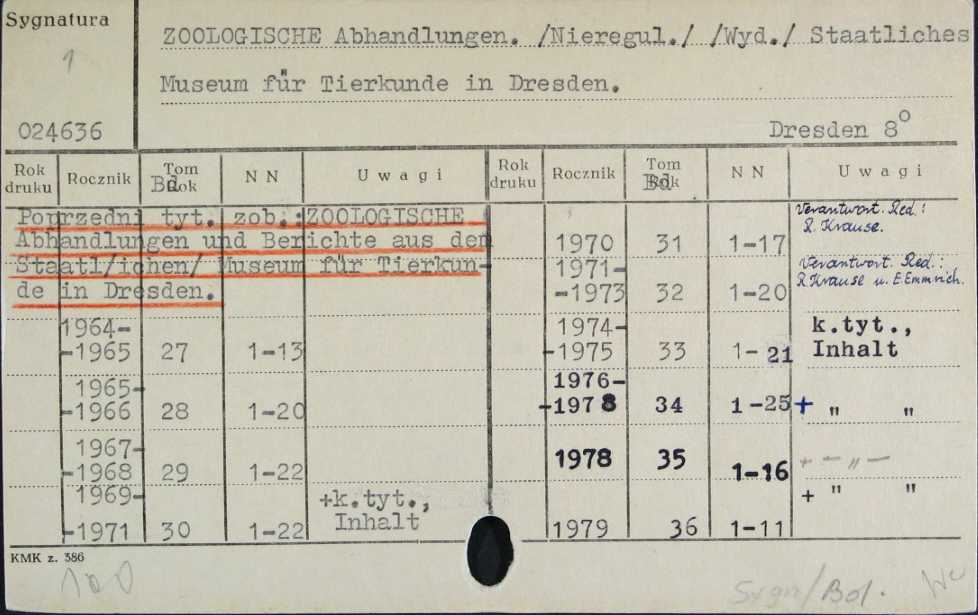 Sygnatura
1
024636
ZOOLOGISCHE Abhandlungen. /Nieregul./ /Wyd./ Staatliches
Museum für Tierkunde in Dresden.
Dresden 8°
Rok druku Rocznik Tom Rok Bd. N N Uwagi Rok druku Rocznik Tom Rok Bd. N N Uwagi
Poprzedni tyt. zob.: ZOOLOGISCHE
Abhandlungen und Berichte aus dem
Staatl/ichen/ Museum für Tierkun-
de in Dresden.
1964-
-1965 27 1-13
1965-
-1966 28 1-20
1967-
-1968 29 1-22
1969-
-1971 30 1-22 +k.tyt., Inhalt
1970 31 1-17 Verantwort. Red.: R. Krause.
1971-
-1973 32 1-20 Verantwort. Red.: R. Krause u. E. Emmrich.
1974-
-1975 33 1-21 k.tyt., Inhalt
1976-
-1978 34 1-25 + " "
1978 35 1-16 + - " -
1979 36 1-11 + " "
KMK z. 386
100
Sygn/Bol.